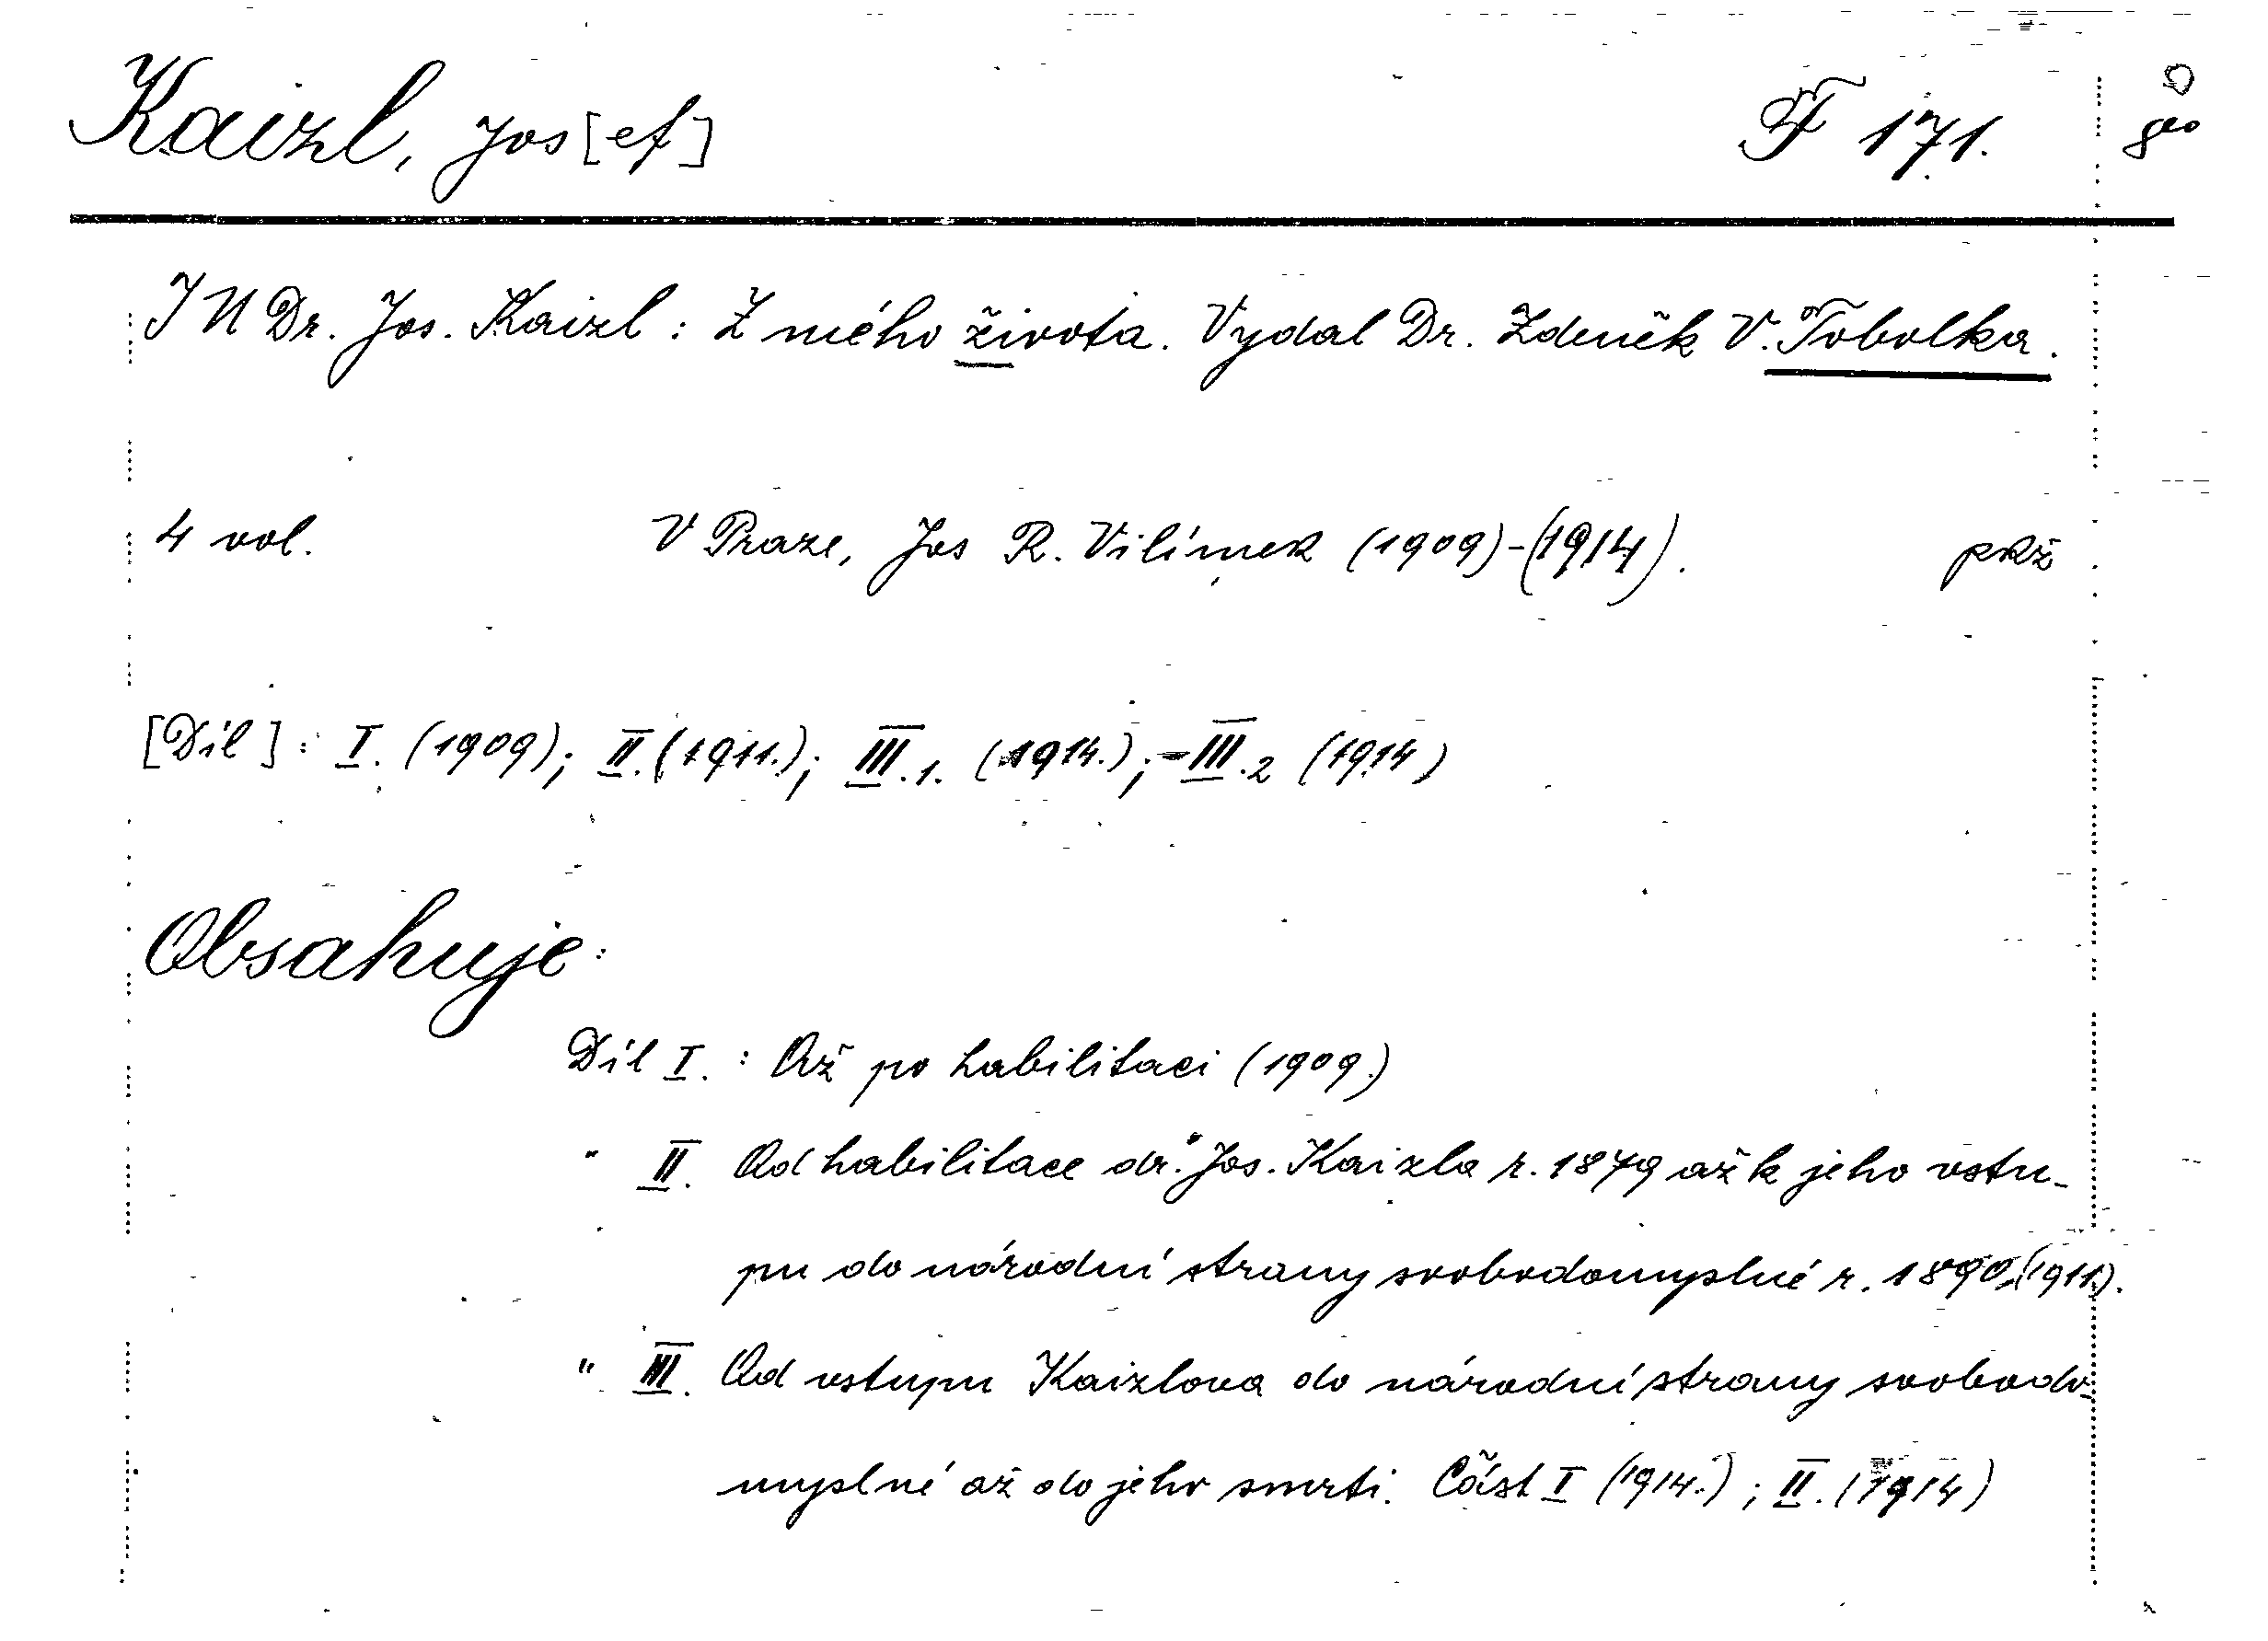 Kaizl, Jos[ef] F 171. 8°
JUDr. Jos. Kaizl: Z mého života. Vydal Dr. Zdeněk V. Tobolka.
4 vol. V Praze, Jos R. Vilímek (1909)-(1914). pkž
[Díl]: I. (1909); II. (1911.); III.1. (1914.); - III.2 (1914)
Obsahuje:
Díl I. : Až po habilitaci (1909.)
" II. Od habilitace dr. Jos. Kaizla r. 1879 až k jeho vstu-
pu do národní strany svobodomyslné r. 1890 (1911).
" III. Od vstupu Kaizlova do národní strany svobodo-
myslné až do jeho smrti. Část I (1914.); II. (1914)